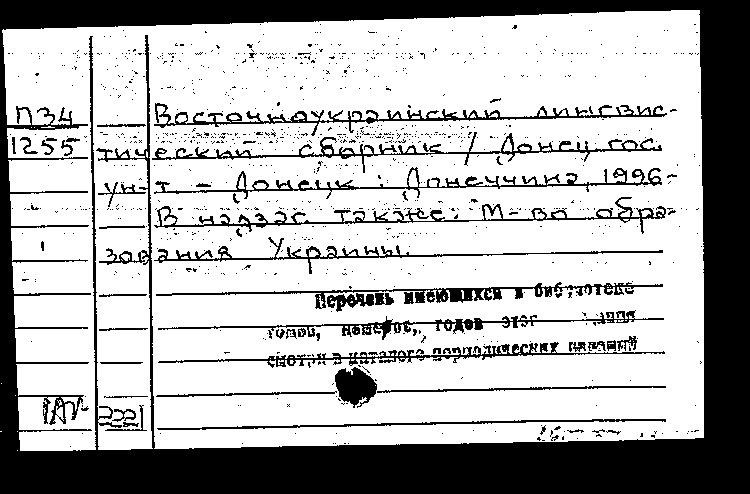 П34 Восточноукраинский лингвис-
1255 тический сборник / Донец. гос.
ун-т. – Донецк : Донеччина, 1996-
В надзаг. также: М-во обра-
зования Украины.
Перечень имеющихся в библиотеке
томов, номеров, годов этого издания
смотри в каталоге периодических изданий
2221